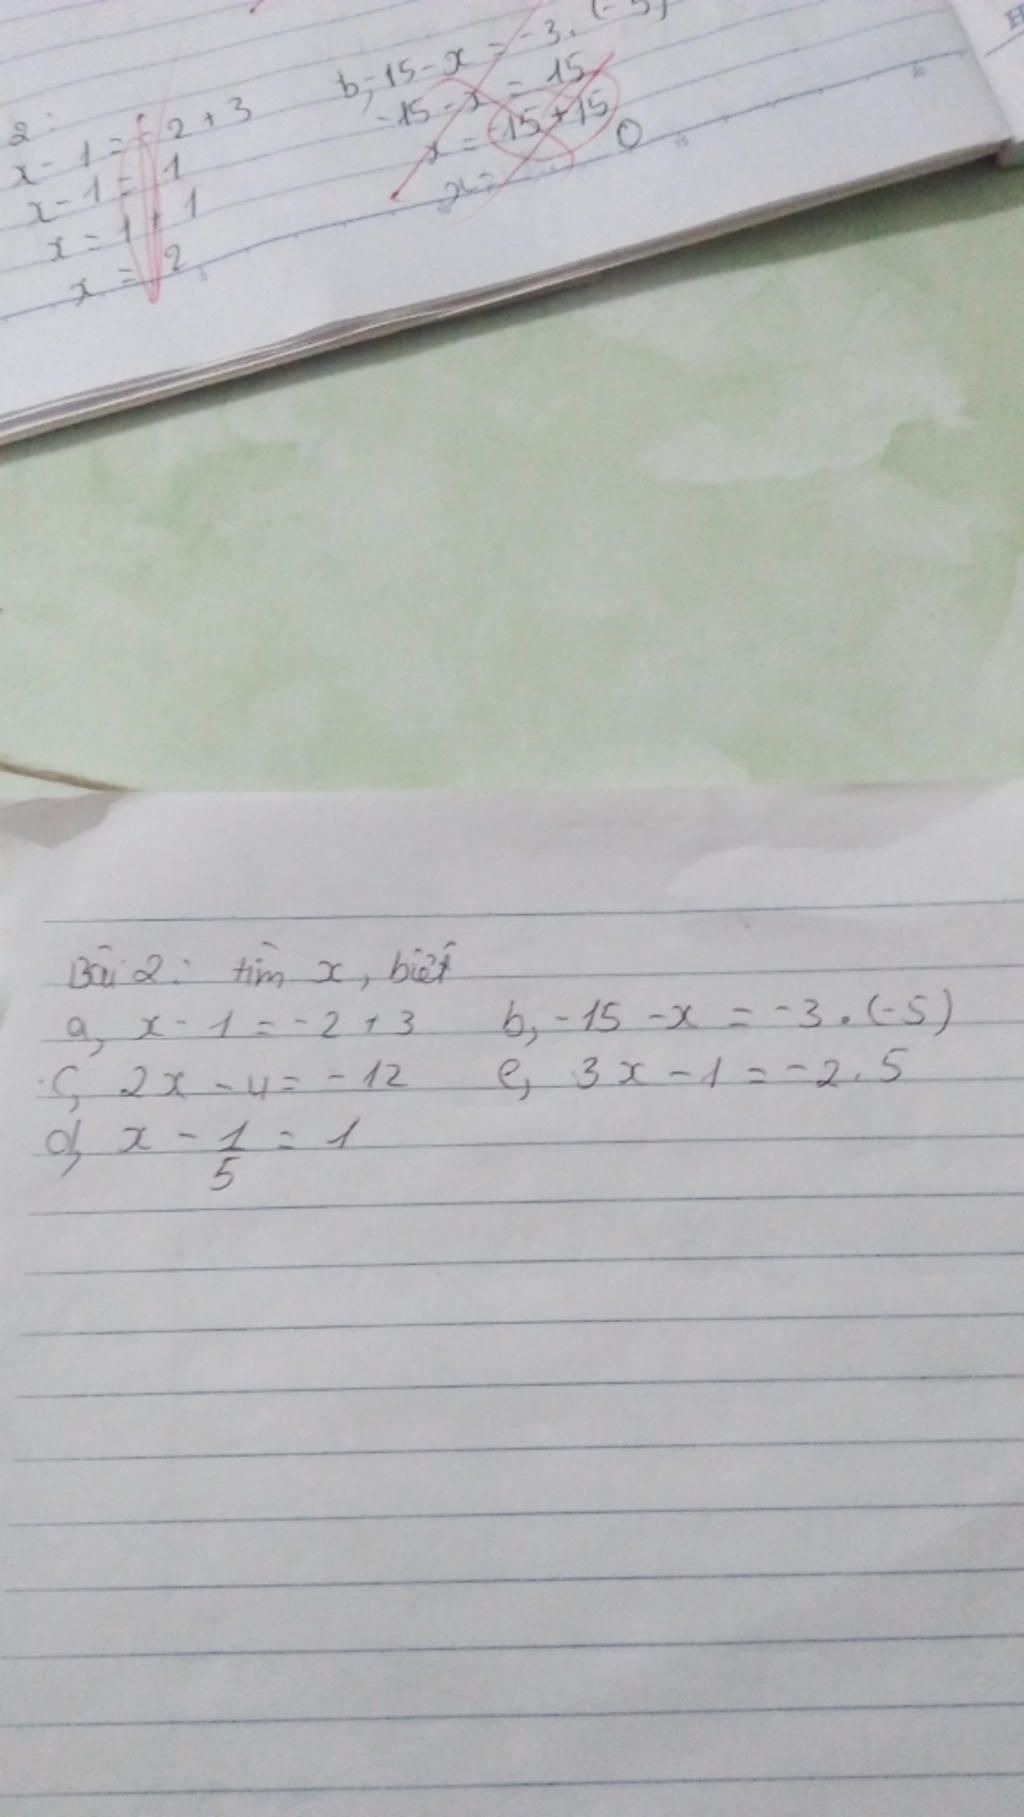 2:
x - 1 = -2 + 3
x - 1 = 1
x = 1 + 1
x = 2
b, -15 - x = -3. (-5)
-15 - x = 15
x = -15 + 15
x = 0
Bài 2: tìm x, biết
a, x - 1 = -2 + 3 b, -15 - x = -3 . (-5)
c, 2x - 4 = -12 e, 3x - 1 = -2 . 5
d, x - 1/5 = 1